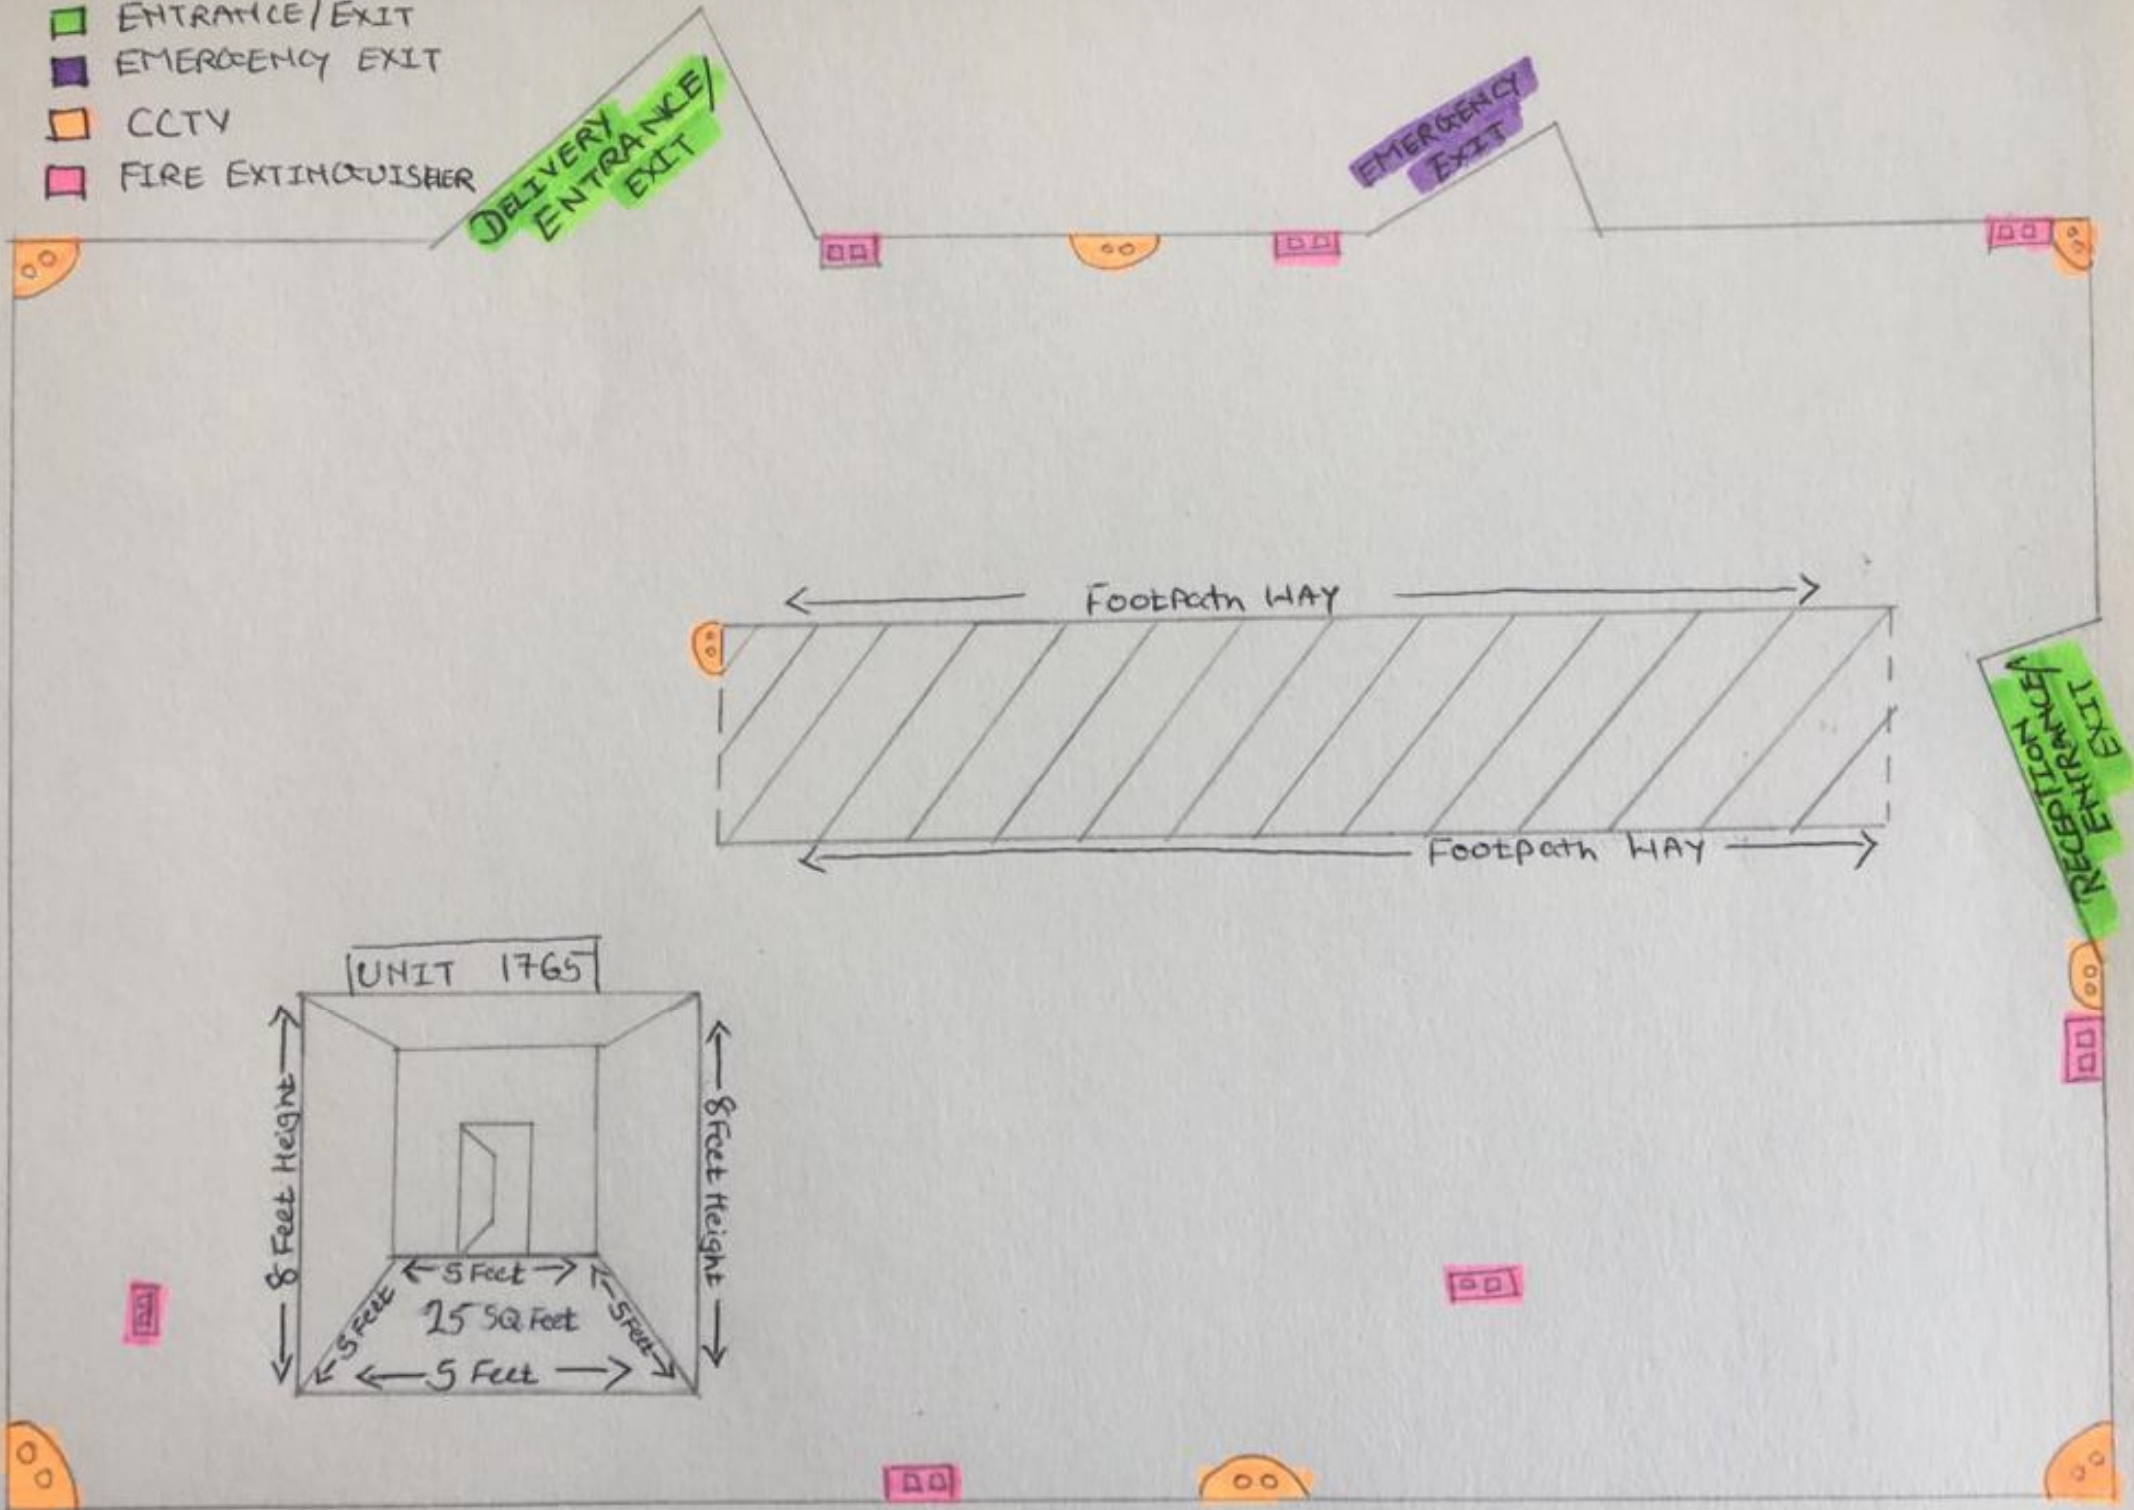 ENTRANCE/EXIT
EMERGENCY EXIT
CCTV
FIRE EXTINGUISHER
DELIVERY
ENTRANCE/
EXIT
EMERGENCY
EXIT
Footpath WAY
Footpath WAY
RECEPTION
ENTRANCE/
EXIT
UNIT 1765
8 Feet Height
8 Feet Height
5 Feet
5 Feet
5 Feet
25 SQ Feet
5 Feet